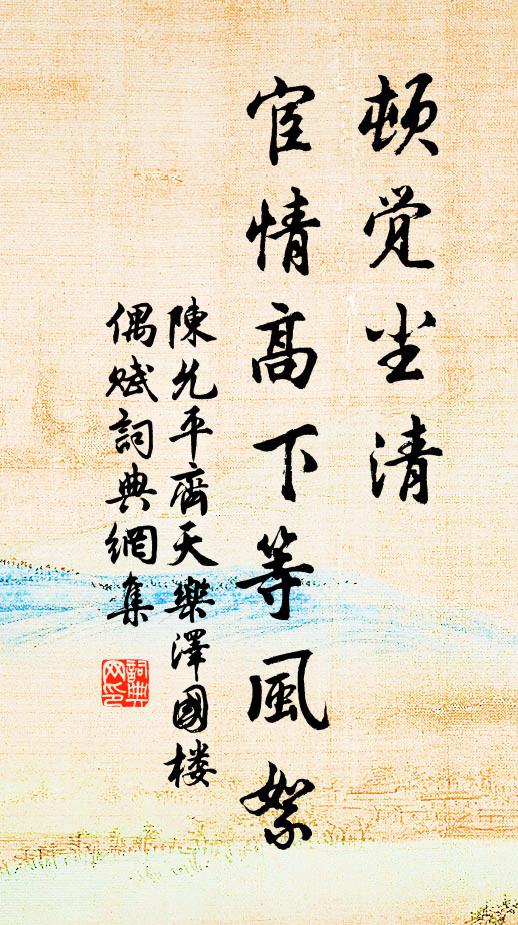 頓觉尘清
宦情高下等風絮
陳允平齊天樂澤國楼
偶赋詞典網集
詞典
网印